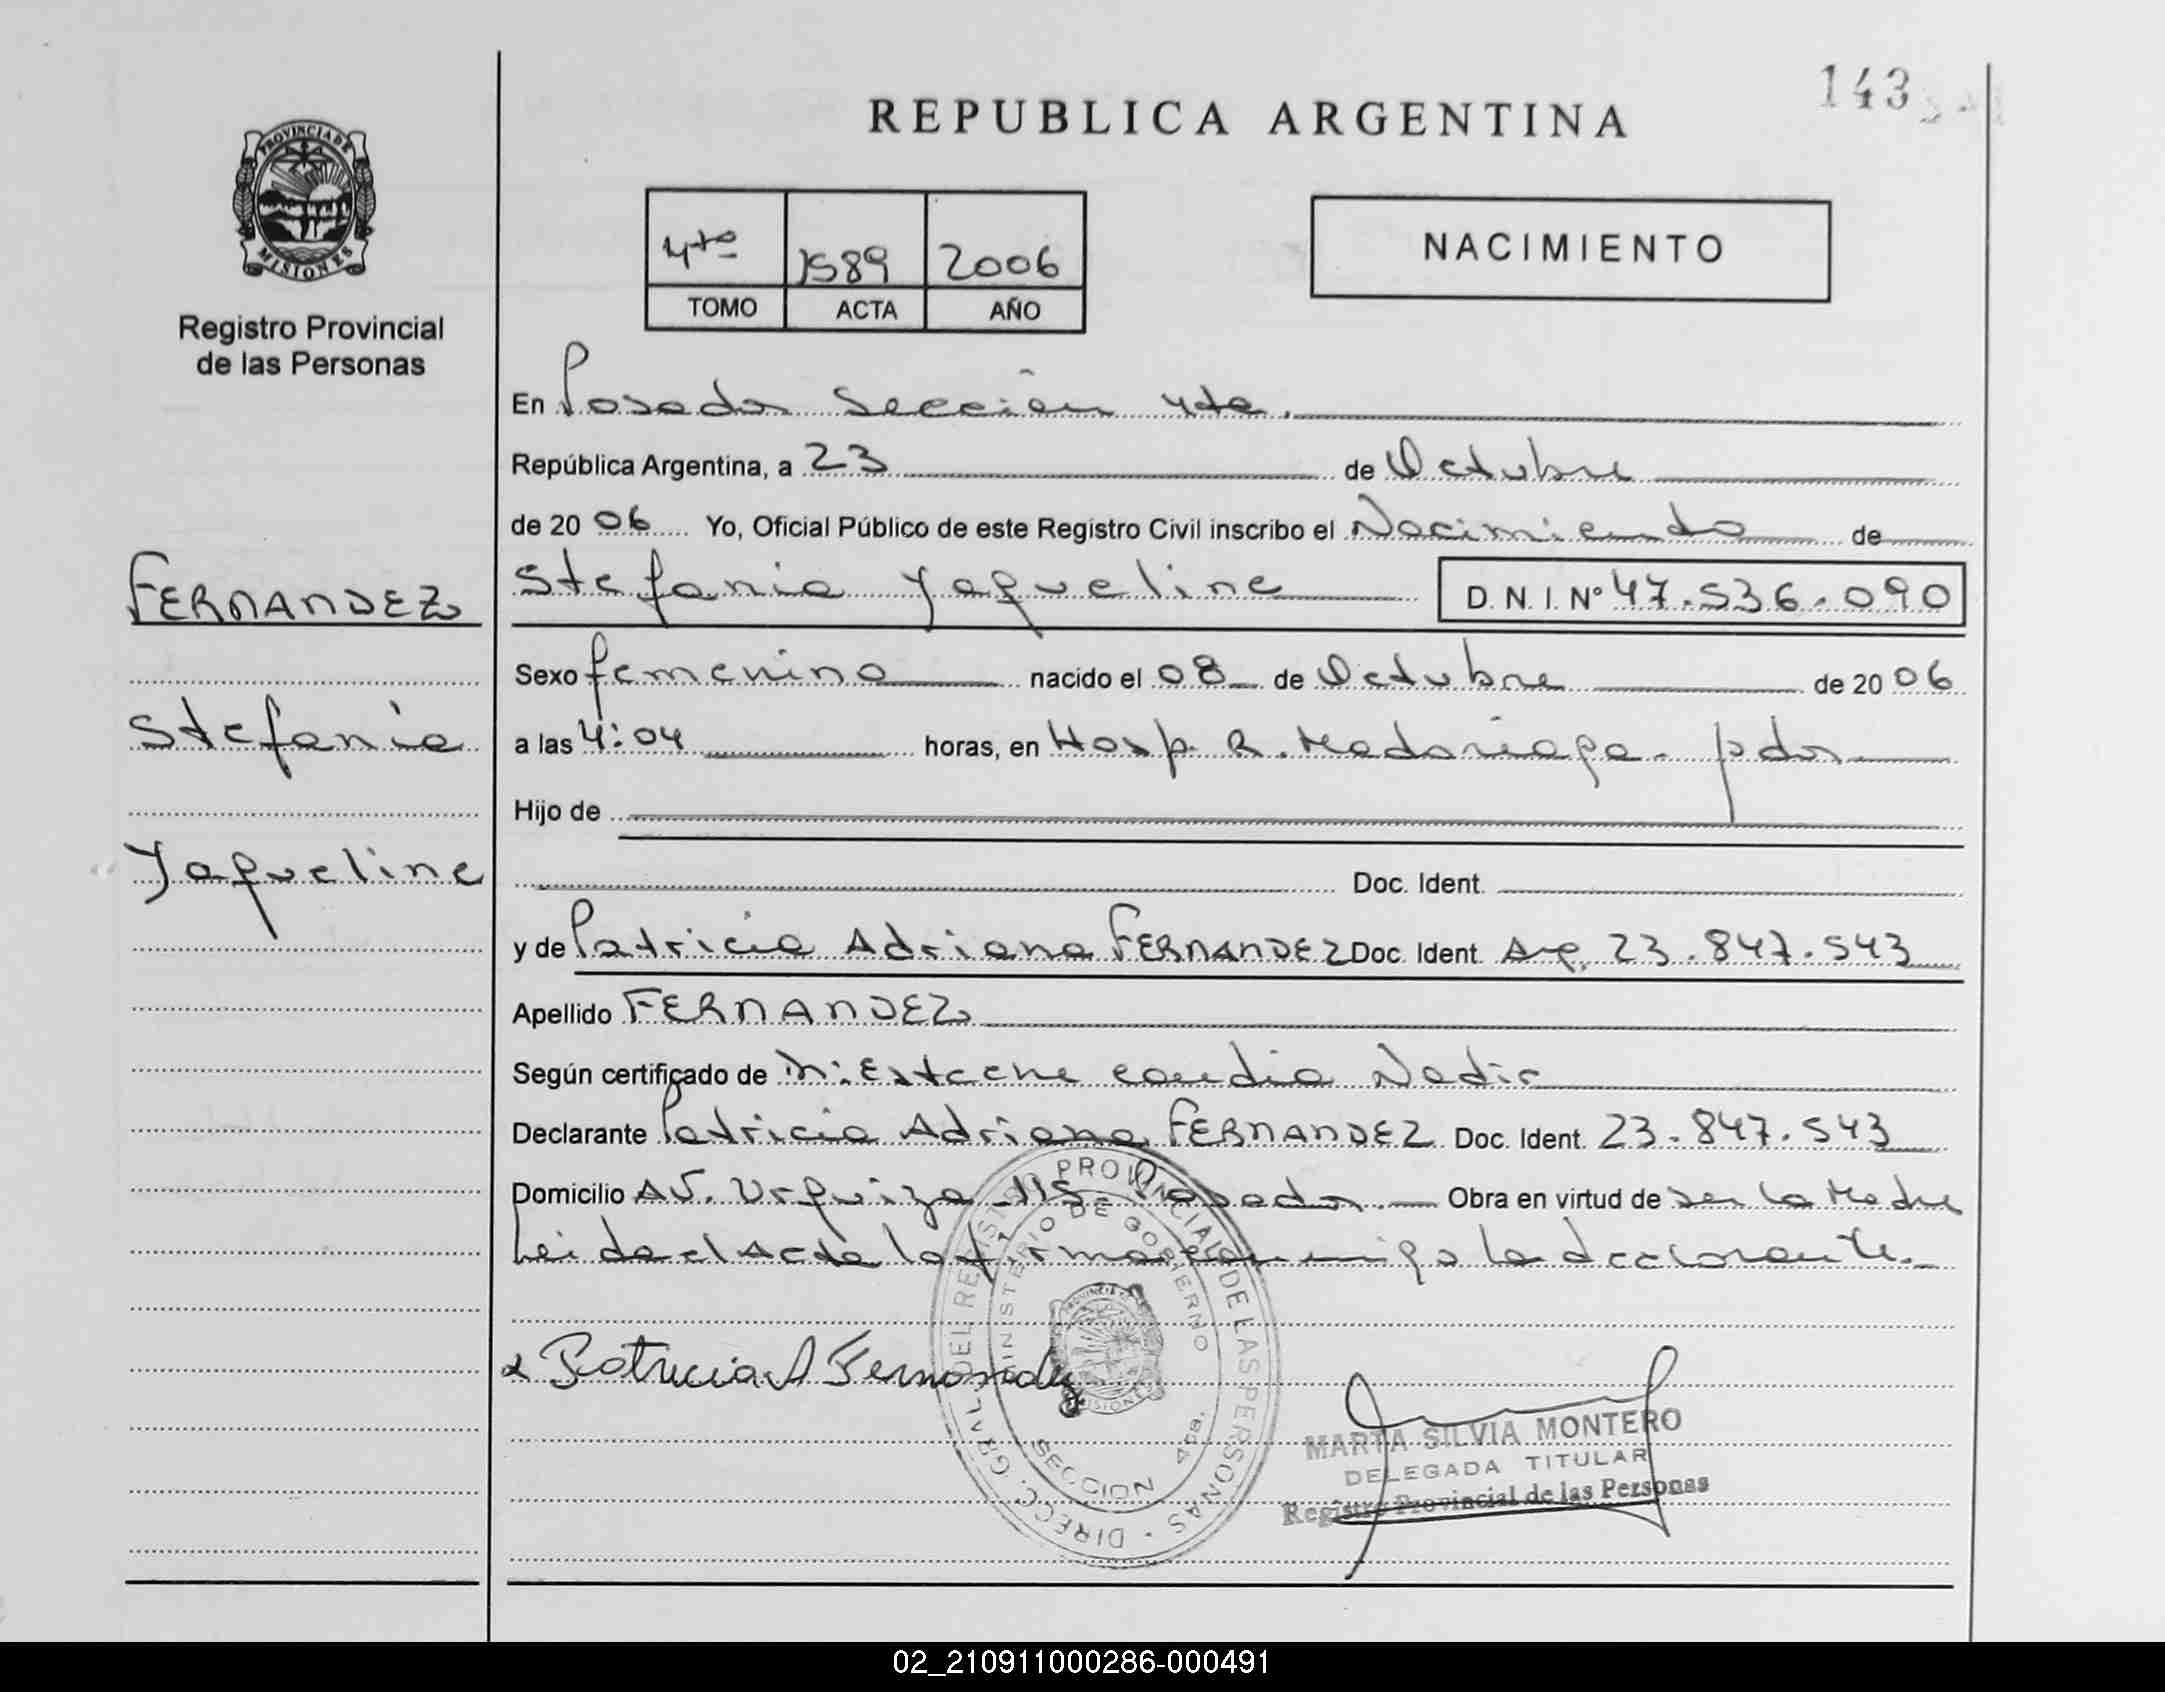 143
REPUBLICA ARGENTINA
PROVINCIA DE
MISIONES
Registro Provincial
de las Personas
4to 1589 2006
TOMO ACTA AÑO
NACIMIENTO
En Posadas Sección 4ta.
República Argentina, a 23 de Octubre
de 20 06 Yo, Oficial Público de este Registro Civil inscribo el Nacimiento de
Stefania Yaqueline D.N.I. Nº 47.536.090
FERNANDEZ
Stefania
Yaqueline
Sexo femenino nacido el 08 de Octubre de 20 06
a las 4:04 horas, en Hosp R. Madariaga - pdas
Hijo de
Doc. Ident.
y de Patricia Adriana FERNANDEZ Doc. Ident. Arg. 23.847.543
Apellido FERNANDEZ
Según certificado de Nadia
Declarante Patricia Adriana FERNANDEZ Doc. Ident. 23.847.543
Domicilio Av. Urquiza 115 - Posadas. Obra en virtud de ser la Madre
Leida el Acta la firma conmigo la declarante.
Patricia A Fernandez
DIRECC. GRAL. DEL REGISTRO PROVINCIAL DE LAS PERSONAS
MINISTERIO DE GOBIERNO
SECCION 4ta.
MARTA SILVIA MONTERO
DELEGADA TITULAR
Registro Provincial de las Personas
02_210911000286-000491